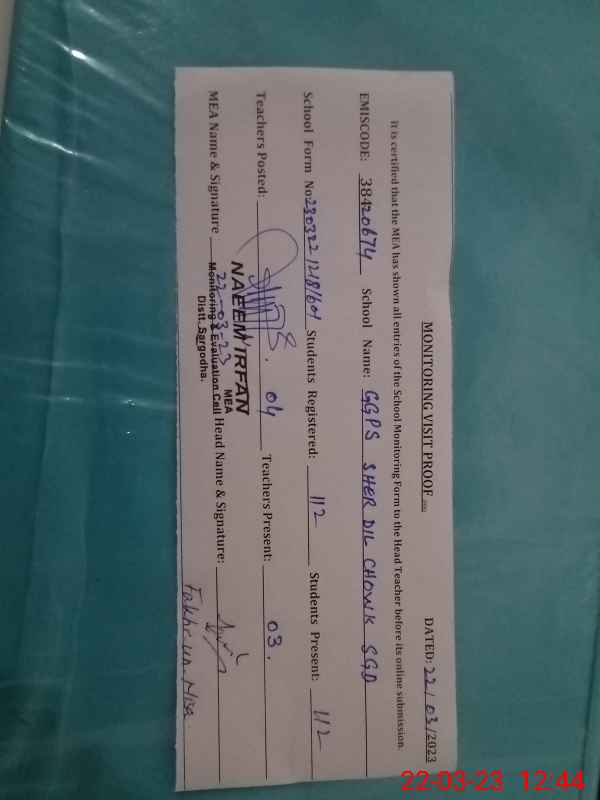 MONITORING VISIT PROOF
DATED: 22/03/2023
It is certified that the MEA has shown all entries of the School Monitoring Form to the Head Teacher before its online submission.
EMISCODE: 38420674 School Name: GGPS SHER DIL CHOWK SGD
School Form No: 230322/218/601 Students Registered: 112 Students Present: 112
Teachers Posted: 04 Teachers Present: 03.
MEA Name & Signature Head Name & Signature:
NAEEM IRFAN
MEA
22-03-23
Monitoring & Evaluation Cell
Distt. Sargodha.
Fakhr un Nisa
22-03-23 12:44